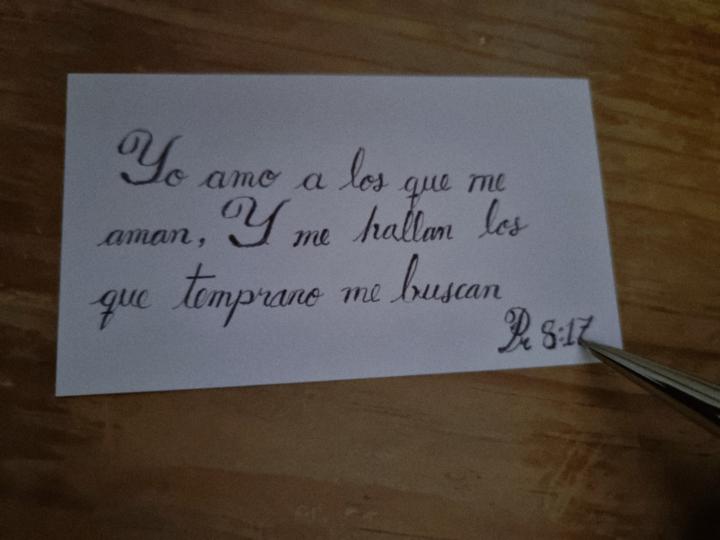 Yo amo a los que me
aman, Y me hallan los
que temprano me buscan
Pr 8:17